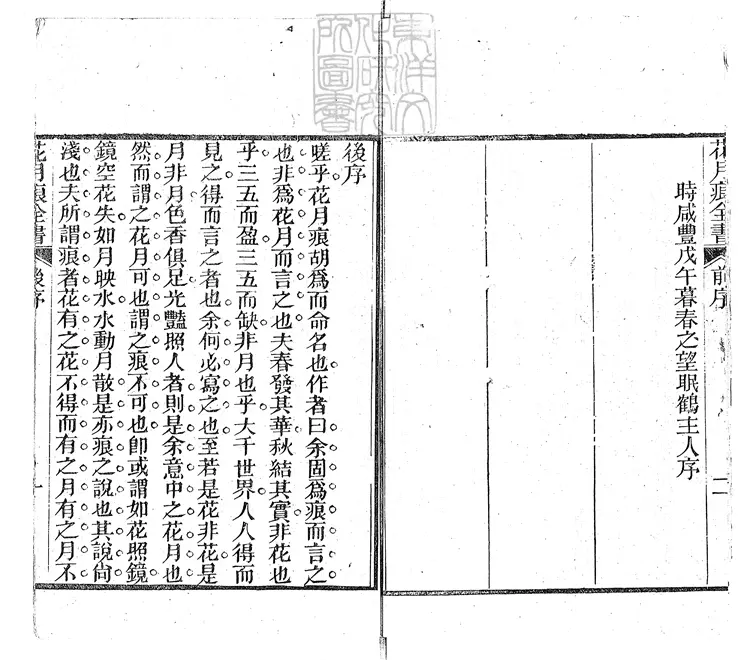 花月痕全書 前序 二
時咸豐戊午暮春之望眠鶴主人序
東洋文
化研究
所圖書
後序
嗟乎花月痕胡為而命名也作者曰余固為痕而言之
也非為花月而言之也夫春發其華秋結其實非花也
乎三五而盈三五而缺非月也乎大千世界人人得而
見之得而言之者也余何必寫之也至若是花非花是
月非月色香俱足光豔照人者則是余意中之花月也
然而謂之花月可也謂之痕不可也卽或謂如花照鏡
鏡空花失如月映水水動月散是亦痕之說也其說尙
淺也夫所謂痕者花有之花不得而有之月有之月不
花月痕全書 後序 一